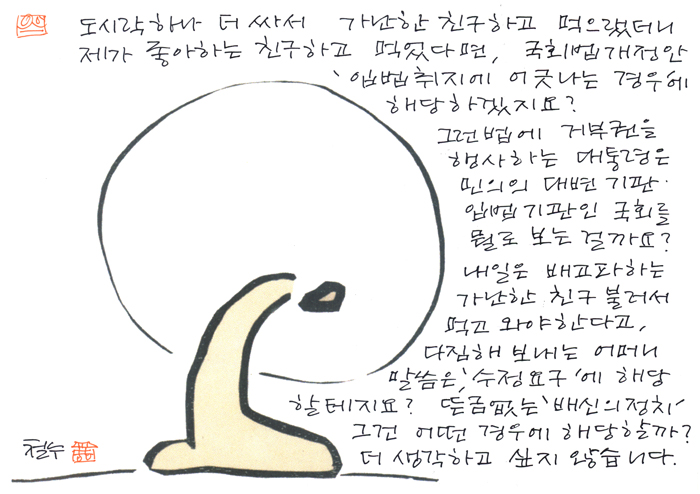 도시락 하나 더 싸서 가난한 친구하고 먹으랬더니
제가 좋아하는 친구하고 먹었다면, 국회법개정안
'입법취지에 어긋나는 경우에
해당하겠지요?
그런법에 거부권을
행사하는 대통령은
민의의 대변기관·
입법기관인 국회를
뭘로 보는 걸까요?
내일은 배고파하는
가난한 친구 불러서
먹고 와야한다고,
다짐해 보내는 어머니
말씀은, '수정요구'에 해당
할테지요? 뜬금없는 '배신의정치'
그건 어떤 경우에 해당할까?
더 생각하고 싶지 않습니다.
철수